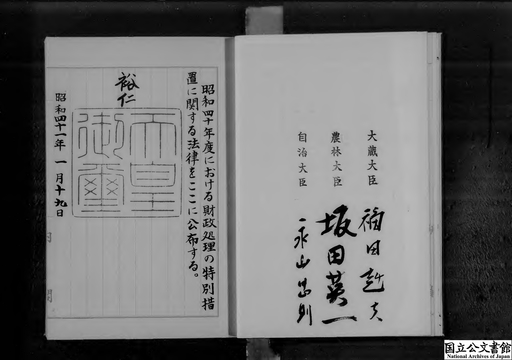 大蔵大臣
福田赳夫
農林大臣
坂田英一
自治大臣
永山忠則
昭和四十年度における財政処理の特別措
置に関する法律をここに公布する。
裕仁
天皇
御璽
昭和四十一年一月十九日
国立公文書館
National Archives of Japan